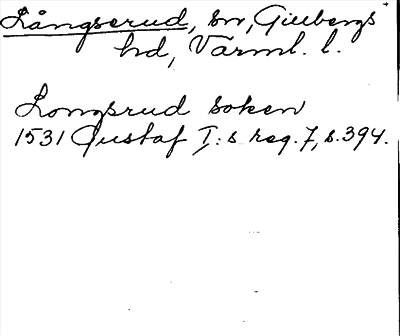 Långserud, sn, Gillbergs
hd, Värml. l.
Longsrud soken
1531 Gustaf I:s reg. 7, s. 394.